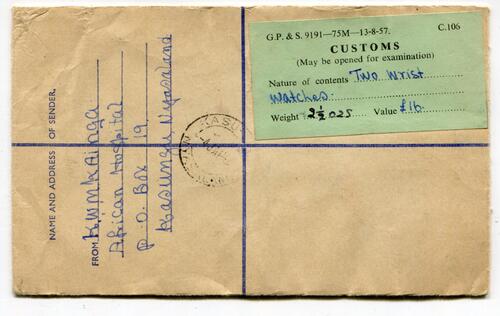 G.P. & S. 9191—75M—13-8-57. C.106
CUSTOMS
(May be opened for examination)
Nature of contents Two Wrist
Watches
Weight 2½ ozs Value £16
NAME AND ADDRESS OF SENDER.
FROM K.W. Mkainga
African Hospital
P.O. Box 19
Kasungu Nyasaland
KASU